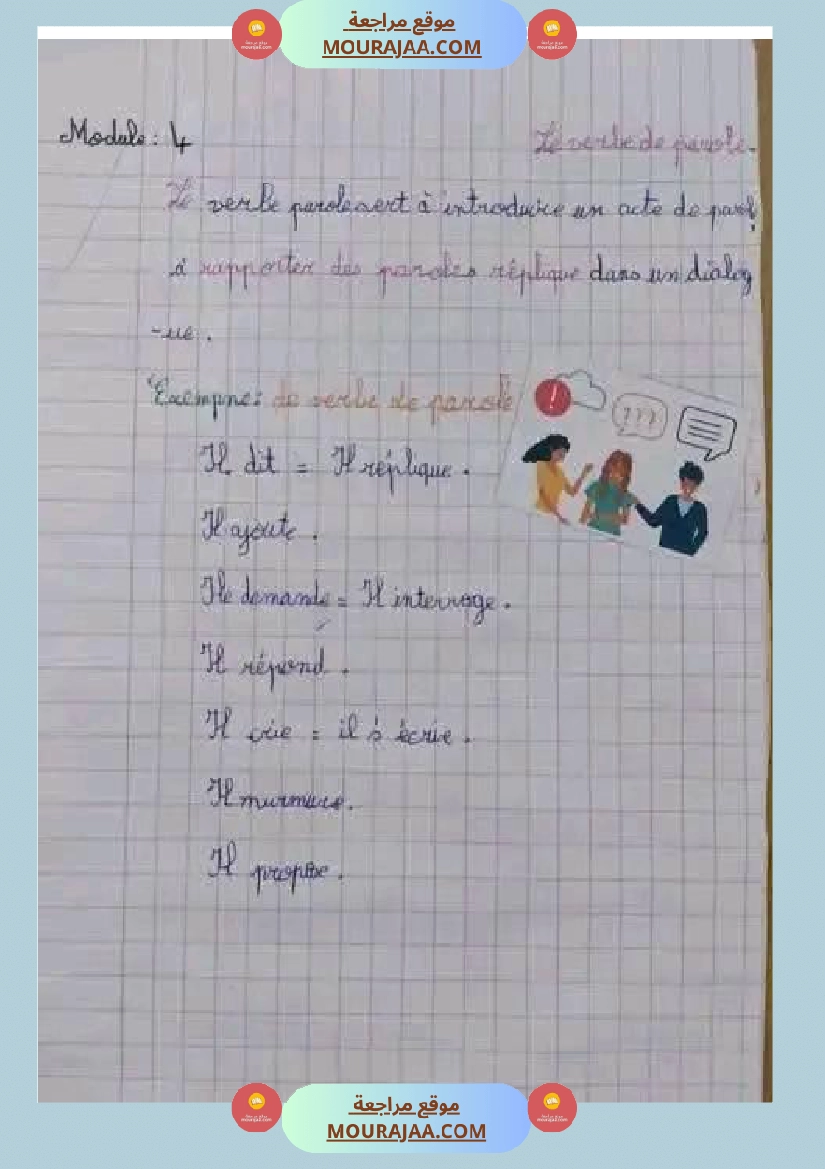 موقع مراجعة
MOURAJAA.COM
Module : 4
Le verbe de parole.
Le verbe parole sert à introduire un acte de parol
à rapporter des paroles réplique dans un dialog
-ue .
Exempne : de verbe de parole
Il dit = Il réplique .
Il ajoute .
Ile demande = Il interroge .
Il répond .
Il crie = il s'écrie .
Il murmure .
Il propose .
???
موقع مراجعة
MOURAJAA.COM